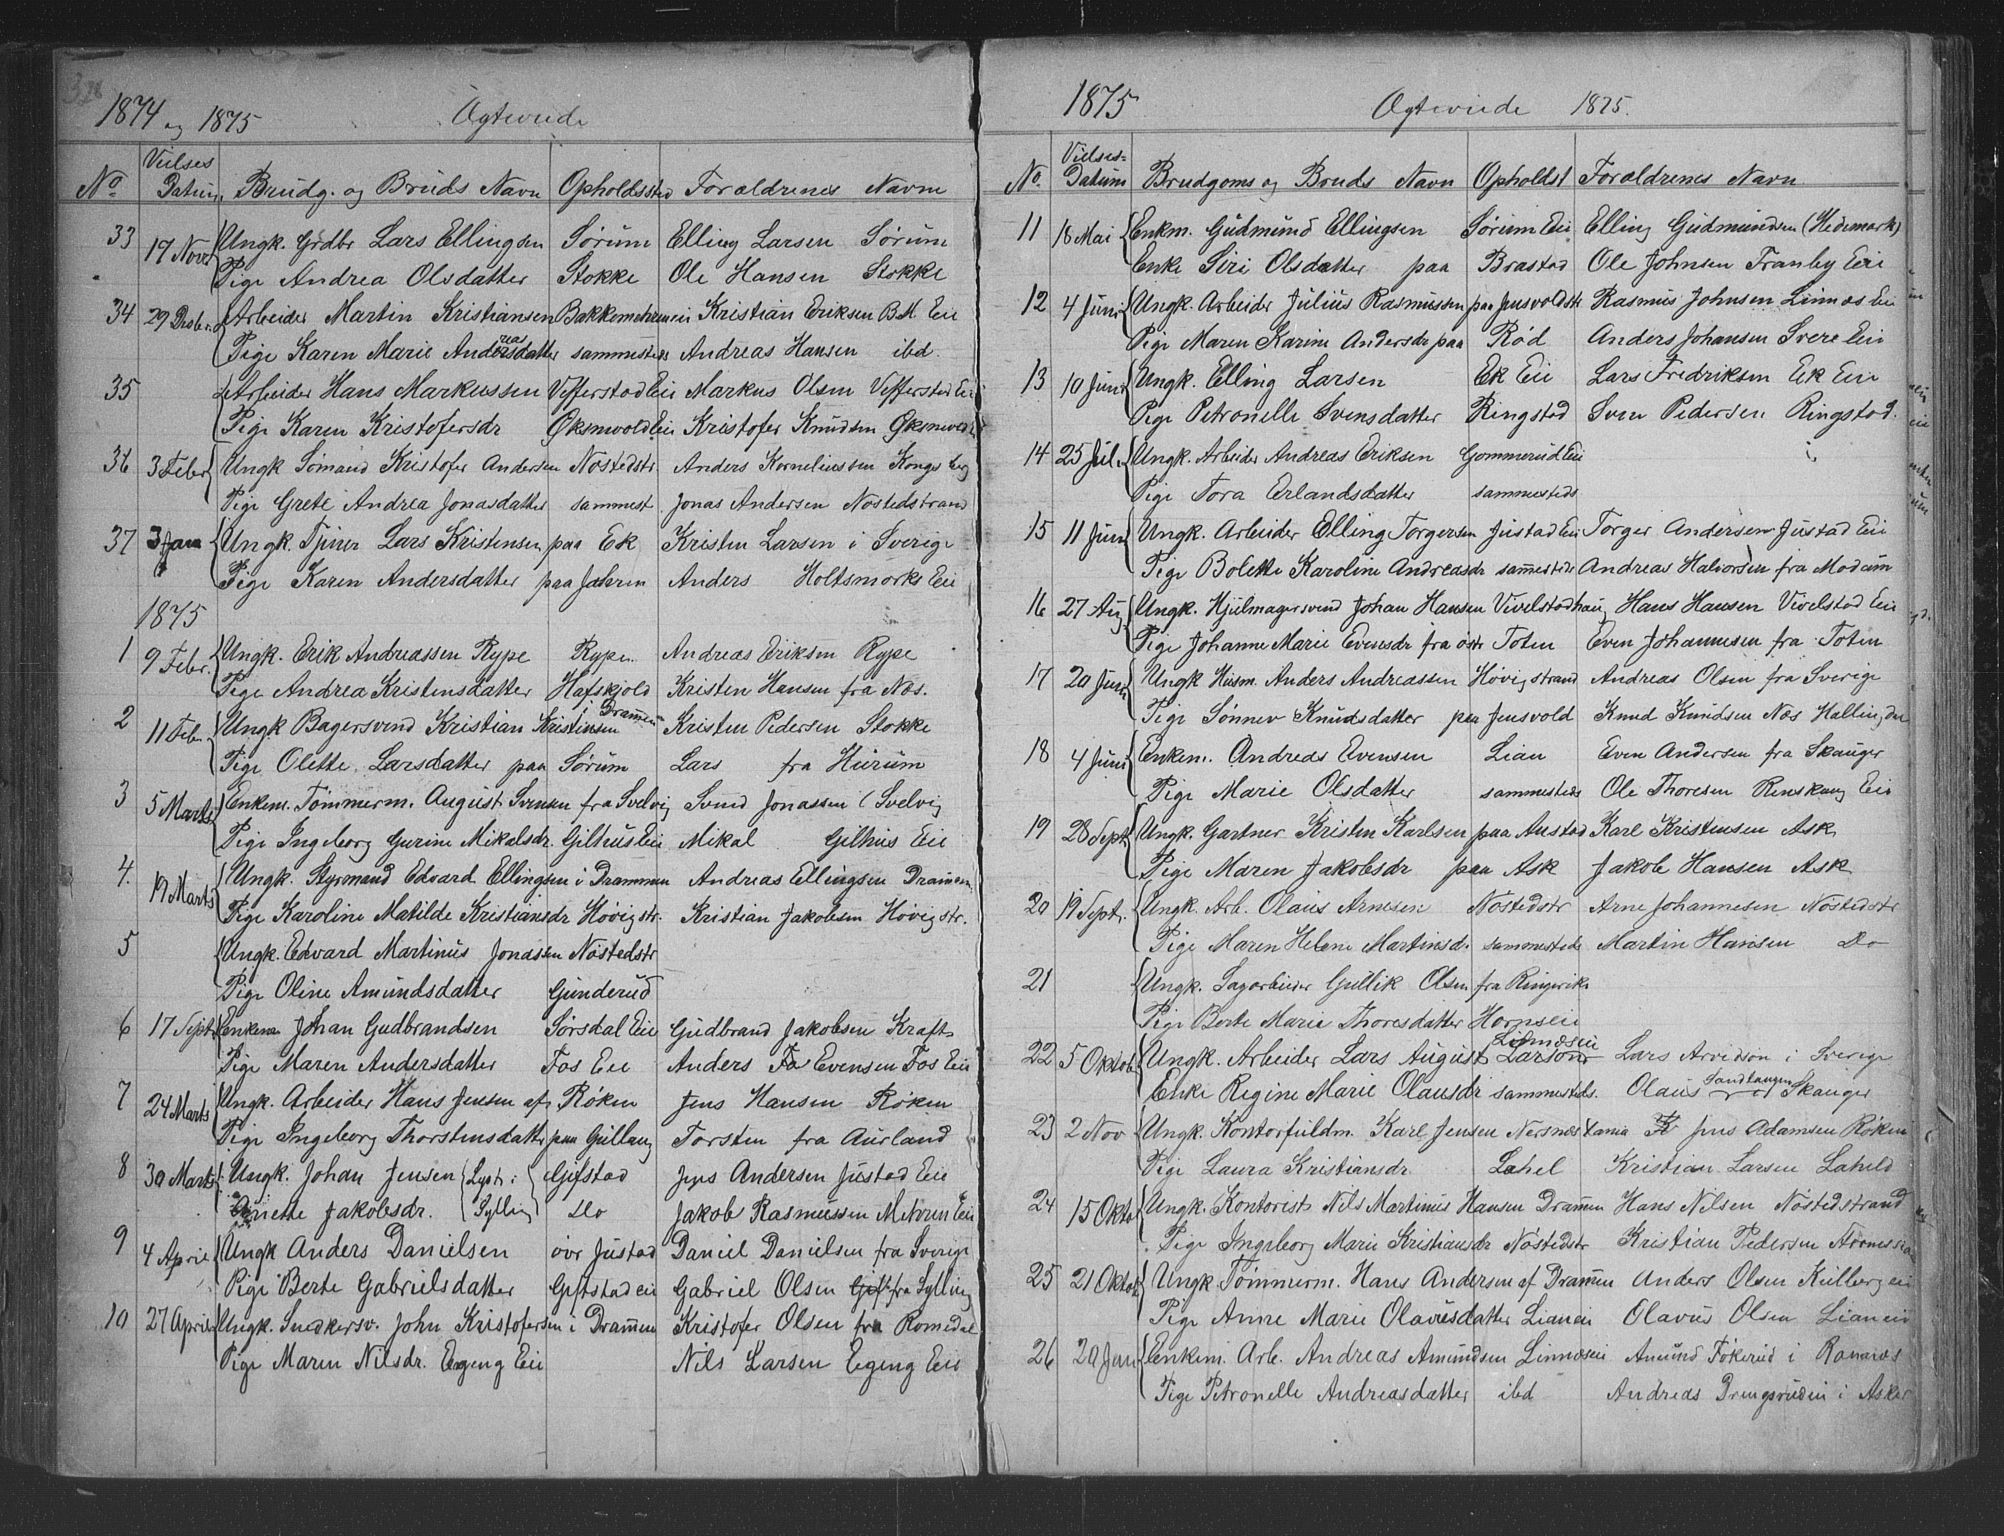 1874 og 1875 Ægteviede
No Vielses Datum Brudg. og Bruds Navn Opholdssted Forældrenes Navne
33 17 Novr Ungk. Grdbr Lars Ellingsen Sørum Elling Larsen Sørum
Pige Andrea Olsdatter Stokke Ole Hansen Stokke
34 29 Dsbr. Arbeider Martin Kristiansen Kristian Eriksen B.M. Eie
Pige Karen Marie Andersdatter reas sammesteds Andreas Hansen ibd.
35 Arbeider Hans Markussen Vefferstad Eie Markus Olsen Vefferstad Eie
Pige Karen Kristofersdr Øksnevold Eie Kristofer Knudsen Øksnevold
36 3 Febr Ungk Sömand Kristofer Andersen Nöstedstr. Anders Korneliussen Kongsberg
Pige Grete Andrea Jonasdatter sammest. Jonas Andersen Nöstedstrand
37 3 Jan Ungk. Tjener Lars Kristensen paa Ek Kristen Larsen i Sverige
Pige Karen Andersdatter paa Jahren Anders Holtsmark Eie
1875
1 9 Febr. Ungk. Erik Andreassen Rype Rype. Andreas Eriksen Rype
Pige Andrea Kristensdatter Hafskjold Kristen Hansen fra Næs.
2 11 Feb. Ungk Bagersvend Kristian Kristensen i Drammen Kristen Pedersen Stokke
Pige Olette Larsdatter paa Sørum Lars fra Hurum
3 5 Marts Enkem. Tömmerm. August Svensen fra Svelvig Svend Jonassen (Svelvig
Pige Ingeborg Gurine Mikalsdr. Gilhus Eie Mikal Gilhus Eie
4. 19 Marts Ungk. Styrmand Edvard Ellingsen i Drammen Andreas Ellingsen Drammen
Pige Karoline Matilde Kristiansdr Høvigstr. Kristian Jakobsen Høvigstr.
5 Ungk. Edvard Martinus Jonassen Nöstedstr
Pige Oline Amundsdatter Gunderud
6 17 Sept Enkem Johan Gudbrandsen Sørsdal Eie Gudbrand Jakobsen Kraft
Pige Maren Andersdatter Fos Eie Anders Fo Evensen Fos Eie
7 24 Marts Ungk. Arbeider Hans Jensen af Røken Jens Hansen Røken
Pige Ingeborg Thorstensdatter paa Gullaug Torsten fra Aurland
8 30 Marts Ungk. Johan Jensen Lyst i Gifstad Jens Andersen Justad Eie
Anette Jakobsdr. Sylling Do Jakob Rasmussen Meheren Eie
9 4 April Ungk Anders Danielsen övr Justad Daniel Danielsen fra Sverige
Pige Berte Gabrielsdatter Giftstad eie Gabriel Olsen Gif fra Sylling
10 27 April Ungk. Snedkersv. John Kristofersen i Drammen Kristofer Olsen fra Romedal
Pige Maren Nilsdr. Egeng Eie Nils Larsen Egeng Eie
1875 Ægteviede 1875.
No. Vielses- Datum Brudgoms og Bruds Navn Opholdst Forældrenes Navn
11 18 Mai Enkm. Gudmund Ellingsen Sørum Eie Elling Gudmundsen (Hedemark)
Enke Siri Olsdatter paa Brastad Ole Johnsen Tranby Eie
12 4 Juni Ungk. Arbeider Julius Rasmussen paa Jensvoldstr Rasmus Johnsen Linnes Eie
Pige Maren Karine Andersdr paa Rød Anders Johansen Svere Eie
13 10 Juni Ungk. Elling Larsen Ek Eie Lars Fredriksen Ek Eie
Pige Petronelle Svensdatter Ringstad Sven Pedersen Ringstad.
14 25 Jul. Ungk. Arbeider Andreas Eriksen Gommerud Eie
Pige Tora Erlandsdatter sammesteds
15 11 Juni Ungk. Arbeider Elling Torgersen Justad Eie Torger Andersen Justad Eie
Pige Bolette Karoline Andreasdr sammesteds Andreas Halvorsen fra Modum
16 27 Aug Ungk. Hjulmagersvend Johan Hansen Vivelstadhaug Hans Hansen Vivelstad Eie
Pige Johanne Marie Evensdr fra östr Toten Even Johannesen fra Toten
17 20 Juni Ungk Husm. Anders Andreassen Høvigstrand Andreas Olsen fra Sverige
Pige Sönnev Knudsdatter paa Jensvold Knud Knudsen Næs Hallingdal
18 4 Juni Enkem. Andreas Evensen Lian Even Andersen fra Skauger
Pige Marie Olsdatter sammesteds Ole Thoresen Renskaug Eie
19 28 Sept Ungk. Gartner Kristen Karlsen paa Austad Karl Kristensen Ask
Pige Maren Jakobsdr paa Ask Jakob Hansen Ask
20 19 Septr. Ungk. Arb. Olaus Arnesen Nöstedstr Arne Johannesen Nöstedstr
Pige Maren Helene Martinsd. sammesteds Martin Hansen Do
21 Ungk. Sagarbeider Gullik Olsen fra Ringerike
Pige Berte Marie Thoresdatter Hornseie
22 5 Oktob Ungk. Arbeider Lars August Larson Linneseie Lars Arvidson i Sverige
Enke Regine Marie Olausdr sammesteds. Olaus Sandtangen Skauger
23 2 Nov Ungk. Kontorfuldm. Karl Jensen Nersnes Jens Adamsen Røken
Pige Laura Kristiansdr Lahel Kristian Larsen Lahell
24 15 Oktob Ungk. Kontorist Nils Martinus Hansen Drammen Hans Nilsen Nöstedstrand
Pige Ingeborg Marie Kristiansdr Nöstedstr Kristian Pedersen
25 21 Oktob Ungk Tömmerm. Hans Andersen af Drammen Anders Olsen Kulberg eie
Pige Anne Marie Olavusdatter Lianeie Olavus Olsen Lianeie
26 20 Jan Enkem. Arb. Andreas Amundsen Linneseie Amund Fökerud i Ramnes
Pige Petronelle Andreasdatter ibd Andreas i Asker